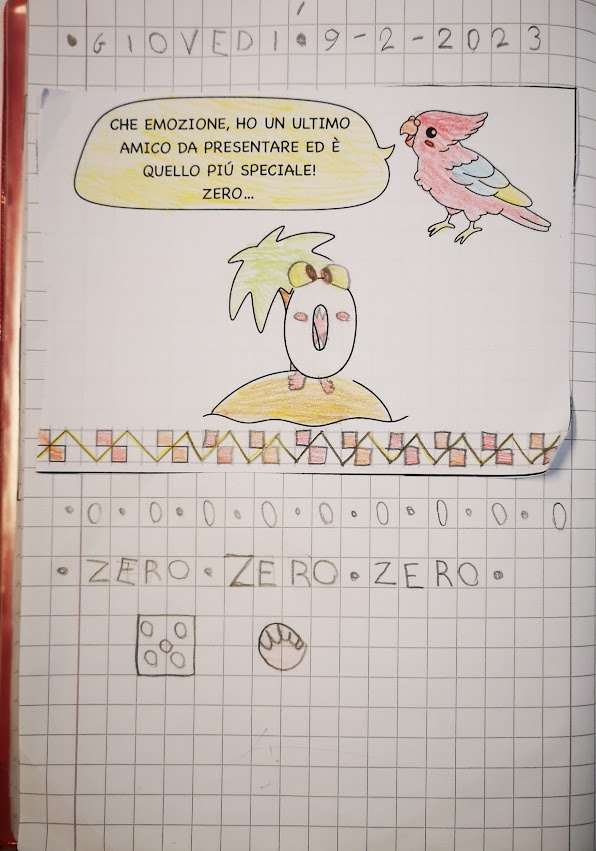 • GIOVEDÌ • 9-2-2023
CHE EMOZIONE, HO UN ULTIMO
AMICO DA PRESENTARE ED È
QUELLO PIÚ SPECIALE!
ZERO...
0
• 0 • 0 • 0 • 0 • 0 • 0 • 0 • 0 • 0
• ZERO • ZERO • ZERO •